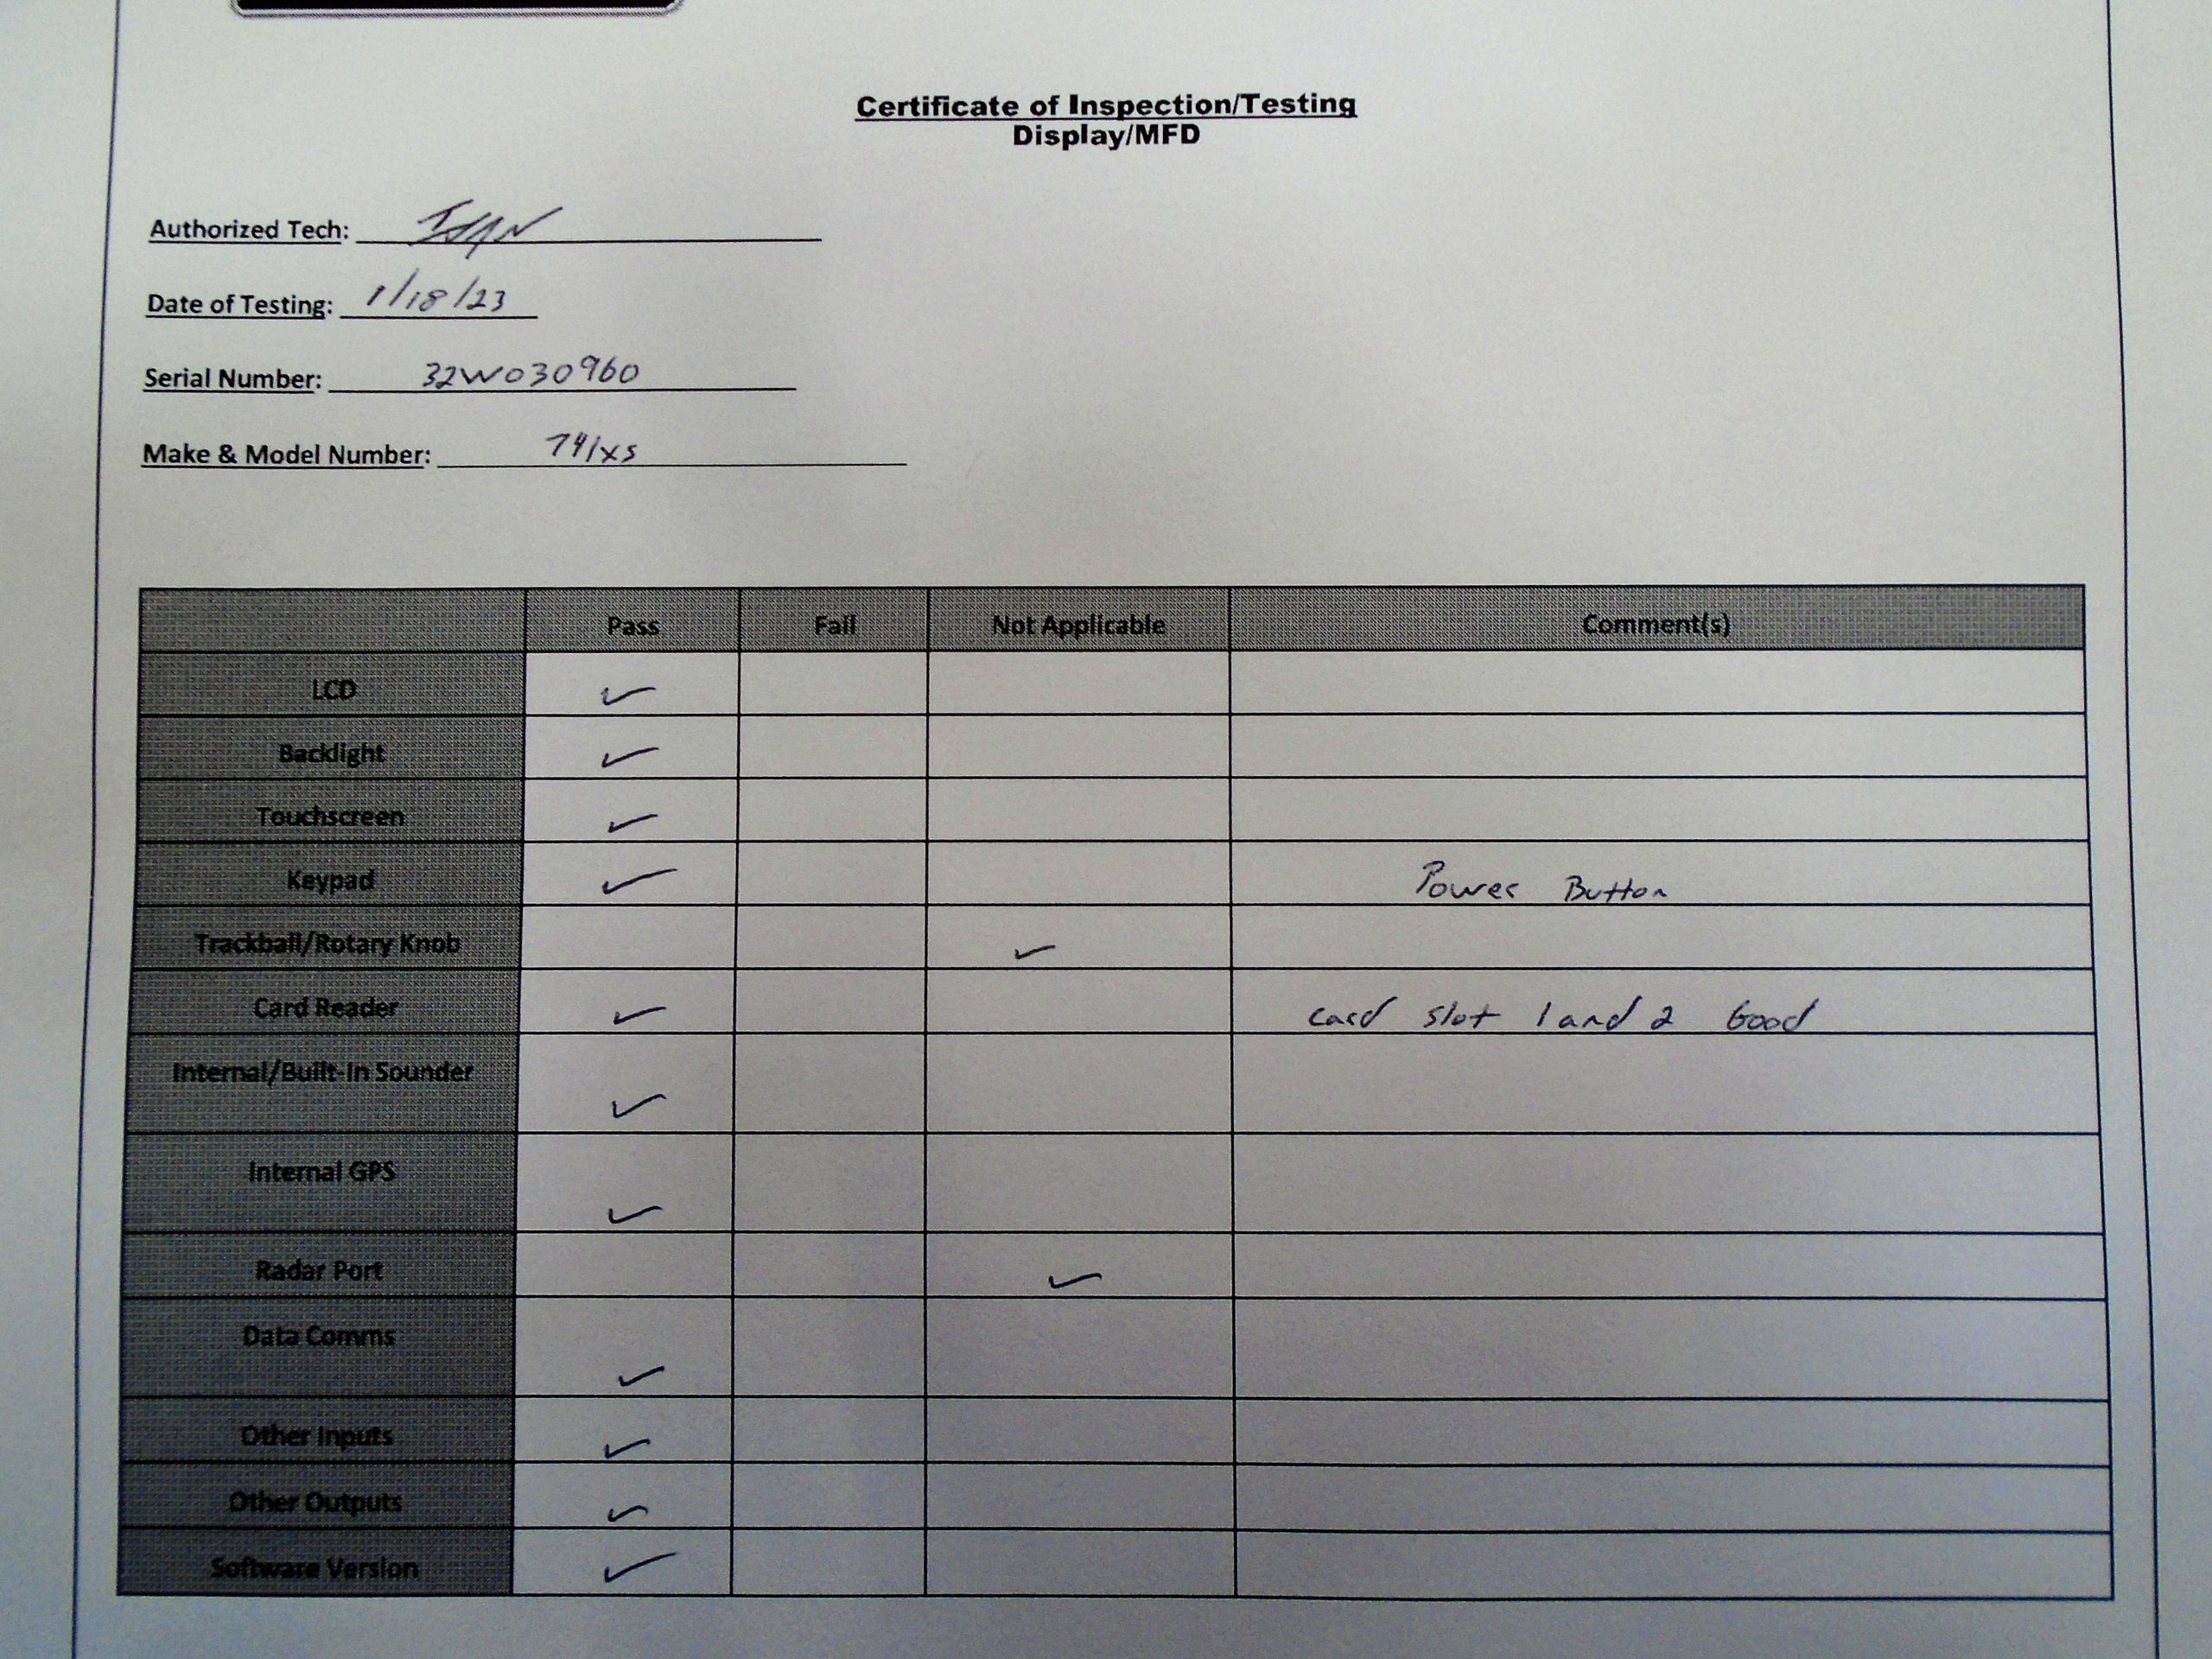 Certificate of Inspection/Testing
Display/MFD
Authorized Tech:
Date of Testing: 1/18/23
Serial Number: 32W030960
Make & Model Number: 741xs
Pass Fail Not Applicable Comment(s)
LCD ✓
Backlight ✓
Touchscreen ✓
Keypad ✓ Power Button
Trackball/Rotary Knob ✓
Card Reader ✓ card slot 1 and 2 Good
Internal/Built-In Sounder ✓
Internal GPS ✓
Radar Port ✓
Data Comms ✓
Other Inputs ✓
Other Outputs ✓
Software Version ✓